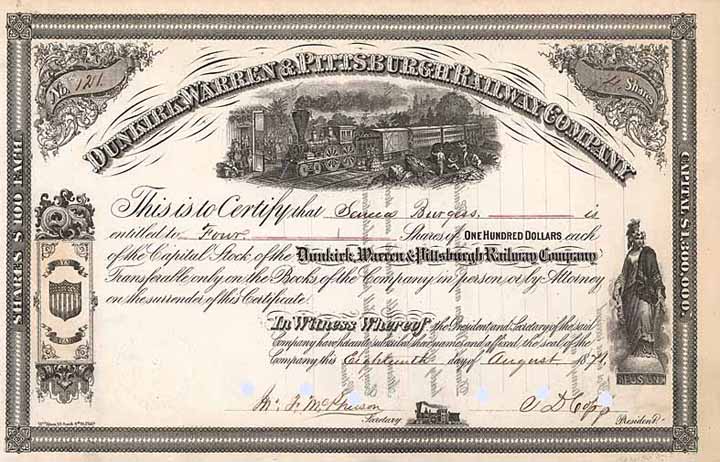 No. 121
4 Shares
DUNKIRK, WARREN & PITTSBURGH RAILWAY COMPANY
SHARES $100 EACH.
CAPITAL $1,500,000.
This is to Certify that Seneca Burgess, is
entitled to Four Shares of ONE HUNDRED DOLLARS each
of the Capital Stock of the Dunkirk, Warren & Pittsburgh Railway Company
Transferable only on the Books of the Company in person or by Attorney
on the surrender of this Certificate.
In Witness Whereof the President and Secretary of the said
Company have hereunto subscribed their names and affixed the seal of the
Company this Eighteenth day of August 1871,
Secretary
President.